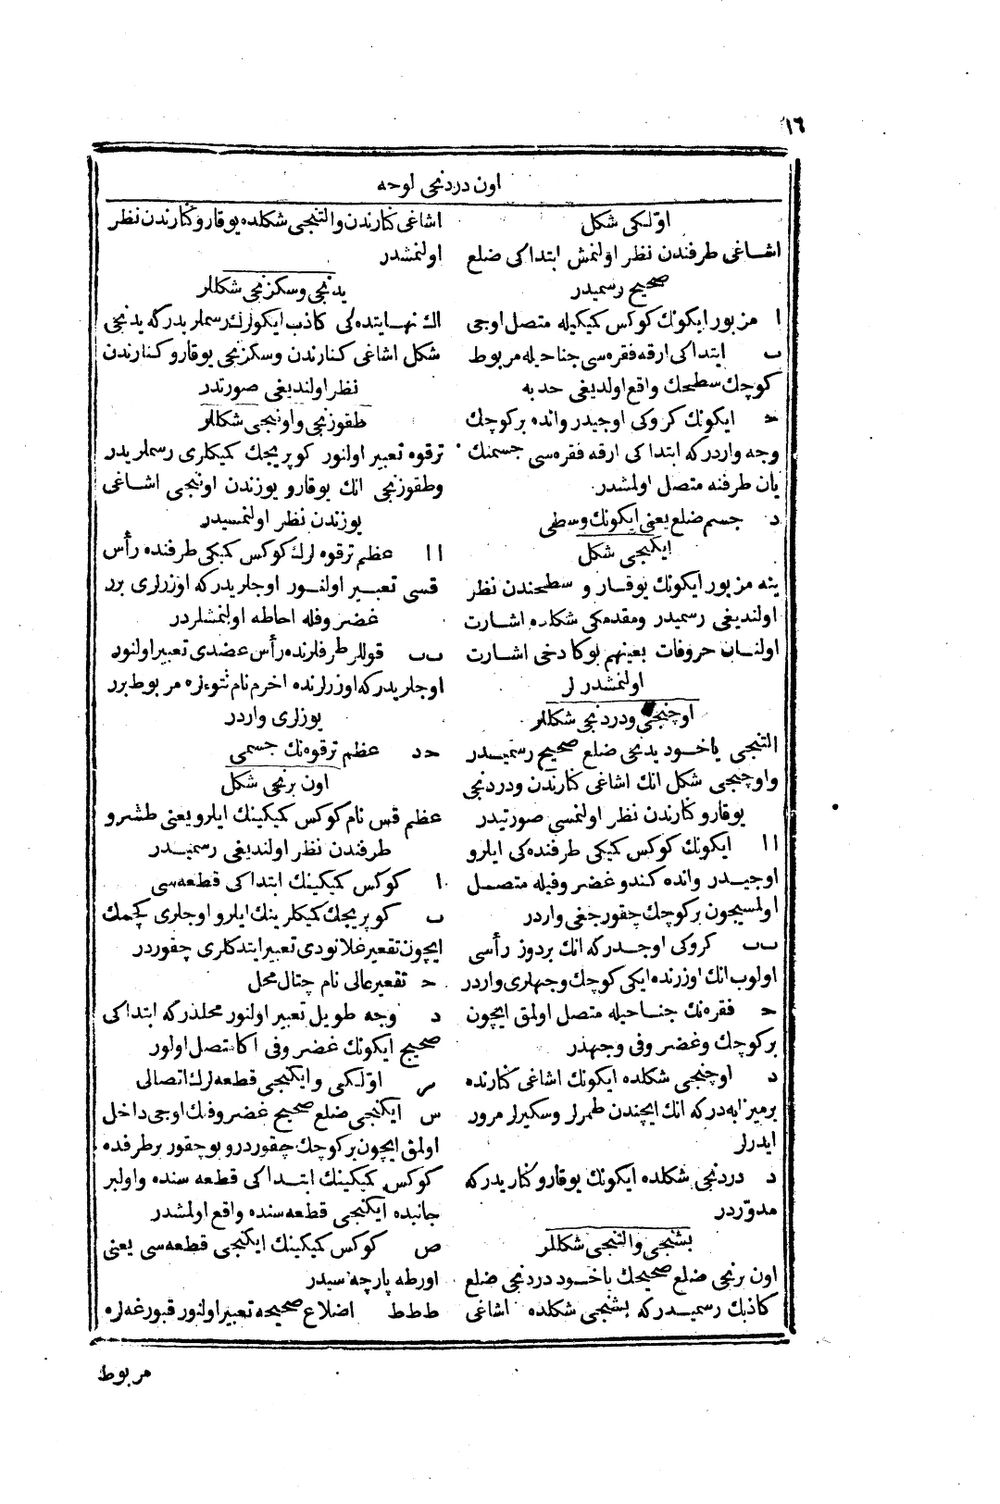 ١٦
اون دردنجى لوحه
اوّلكى شكل
اشاغى طرفندن نظر اولنمش ابتداكى ضلع
صحيح رسميدر
ا مزبور ايكونك كوكس كيكيله متصل اوجى
ب ابتداكى ارقه فقره‌سى جناحيله مربوط
كوچك سطيحك واقع اولديغى حدبه
ح ايكونك كروكى اوجيدر وانده بر كوچك
وجه واردركه ابتداكى ارقه فقره‌سى جسمنك
يان طرفنه متصل اولمشدر
د جسم ضلع يعنى ايكونك وسطى
ايكنجى شكل
ينه مزبور ايكونك يوقارو سطيحندن نظر
اولنديغى رسميدر ومقدمكى شكلده اشارت
اولنان حروفات بعينهم بوكا دخى اشارت
اولنمشدرلر
اوچنجى ودردنجى شكللر
التنجى ياخود يدنجى ضلع صحيح رسميدر
واوچنجى شكل انك اشاغى كنارندن ودردنجى
يوقارو كنارندن نظر اولنمسى صورتيدر
اا ايكونك كوكس كيكى طرفنده‌كى ايلرو
اوجيدر وانده كندو غضروفيله متصل
اولمسيچون بر كوچك چقورجغى واردر
ب‌ب كروكى اوجدركه انك بر دوز رأسى
اولوب انك اوزرنده ايكى كوچك وجهلرى واردر
ح فقره‌نك جناحيله متصل اولمق ايچون
بر كوچك وغضروفى وجهدر
د اوچنجى شكلده ايكونك اشاغى كنارنده
بر ميزابه‌دركه انك ايچندن طمرلر وسكيرلر مرور
ايدرلر
د دردنجى شكلده ايكونك يوقارو كناريدركه
مدوّردر
بشنجى والتنجى شكللر
اون برنجى ضلع صحيحك ياخود دردنجى ضلع
كاذبك رسميدركه بشنجى شكلده اشاغى
اشاغى كنارندن والتنجى شكلده يوقارو كنارندن نظر
اولنمشدر
يدنجى وسكزنجى شكللر
اك نهايتده‌كى كاذب ايكولرك رسملريدركه يدنجى
شكل اشاغى كنارندن وسكزنجى يوقارو كنارندن
نظر اولنديغى صورتدر
طقوزنجى واوننجى شكللر
ترقوه تعبير اولنور كوپريجك كيكلرى رسملريدر
وطقوزنجى انك يوقارو يوزندن اوننجى اشاغى
يوزندن نظر اولنمسيدر
اا عظم ترقوه‌لرك كوكس كيكى طرفنده رأس
قسى تعبير اولنور اوجلريدركه اوزرلرى برر
غضروفله احاطه اولنمشلردر
ب‌ب قوللر طرفلرنده رأس عضدى تعبير اولنور
اوجلريدركه اوزرلرنده اخرم نام نتوءلره مربوط برر
يوزلرى واردر
ح‌د عظم ترقوه‌نك جسمى
اون برنجى شكل
عظم قس نام كوكس كيكينك ايلرو يعنى طشرو
طرفندن نظر اولنديغى رسميدر
ا كوكس كيكينك ابتداكى قطعه‌سى
ب كوپريجك كيكلرينك ايلرو اوجلرى كچمك
ايچون تقعير غلانودى تعبير ايتدكلرى چقوردر
ح تقعير عالى نام چتال محل
د وجه طويل تعبير اولنور محلدركه ابتداكى
صحيح ايكونك غضروفى اكا متصل اولور
ر اوّلكى وايكنجى قطعه‌لرك اتصالى
س ايكنجى ضلع صحيح غضروفنك اوجى داخل
اولمق ايچون بر كوچك چقوردر وبو چقور بر طرفده
كوكس كيكينك ابتداكى قطعه سنده واولبر
جانبده ايكنجى قطعه سنده واقع اولمشدر
ص كوكس كيكينك ايكنجى قطعه‌سى يعنى
اورطه پارچه‌سيدر
ط‌ط‌ط اضلاع صحيحه تعبير اولنور قبورغه‌لره
مربوط